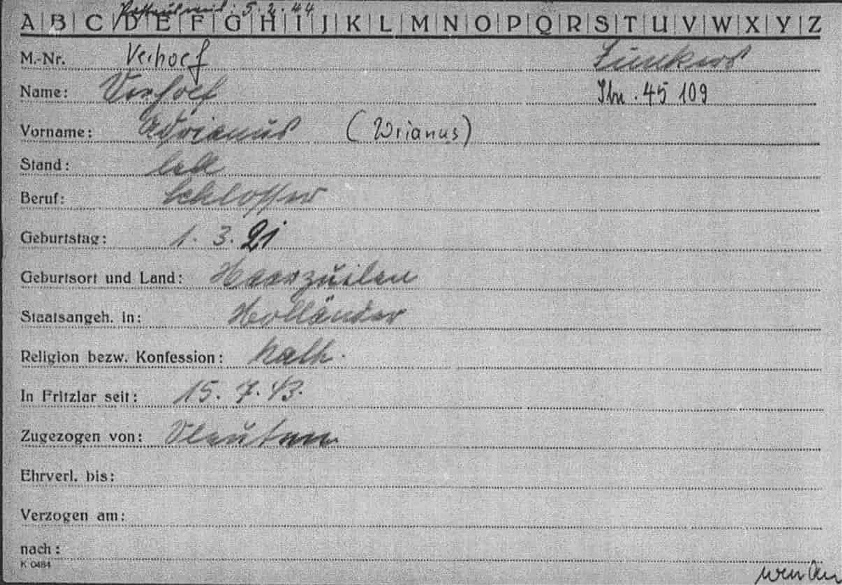 5.2.44
A|B|C|D|E|F|G|H|I|J|K|L|M|N|O|P|Q|R|S|T|U|V|W|X|Y|Z
M.-Nr. Verhoef Junkers
Name: Verhoef Jbn. 45 109
Vorname: Adrianus (Wrianus)
Stand: led
Beruf: Schlosser
Geburtstag: 1. 3. 21
Geburtsort und Land: Haarzuilen
Staatsangeh. in: Holländer
Religion bezw. Konfession: Kath.
In Fritzlar seit: 15. 7. 43.
Zugezogen von: Vleuten
Ehrverl. bis:
Verzogen am:
nach:
K 0484
wenden